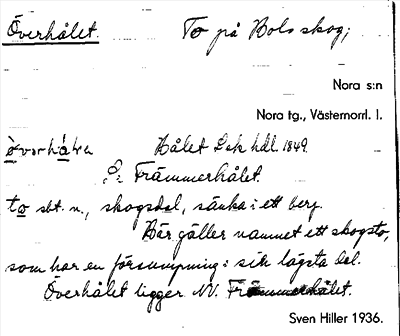 Överhålet. To på Bols skog;
Nora s:n
Nora tg., Västernorrl. l.
Hålet Lsk hdl. 1849.
Ö: Främmerhålet.
to sbt. n., skogsdel, sänka i ett berg.
Här gäller namnet ett skogsto,
som har en försumpning i sin lägsta del.
Överhålet ligger NV. Främmerhålet.
Sven Hiller 1936.